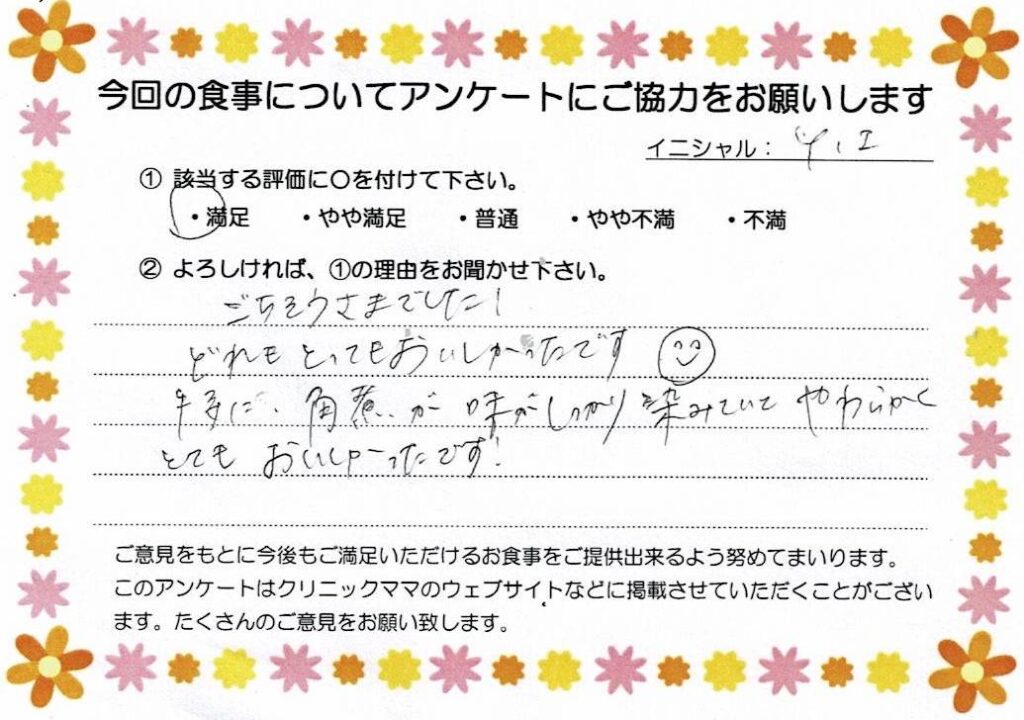 今回の食事についてアンケートにご協力をお願いします
イニシャル： Y、I
① 該当する評価に〇を付けて下さい。
・満足 ・やや満足 ・普通 ・やや不満 ・不満
② よろしければ、①の理由をお聞かせ下さい。
ごちそうさまでした!
どれもとってもおいしかったです
特に、角煮が味がしっかり染みていてやわらかく
とてもおいしかったです!
ご意見をもとに今後もご満足いただけるお食事をご提供出来るよう努めてまいります。
このアンケートはクリニックママのウェブサイトなどに掲載させていただくことがござい
ます。たくさんのご意見をお願い致します。